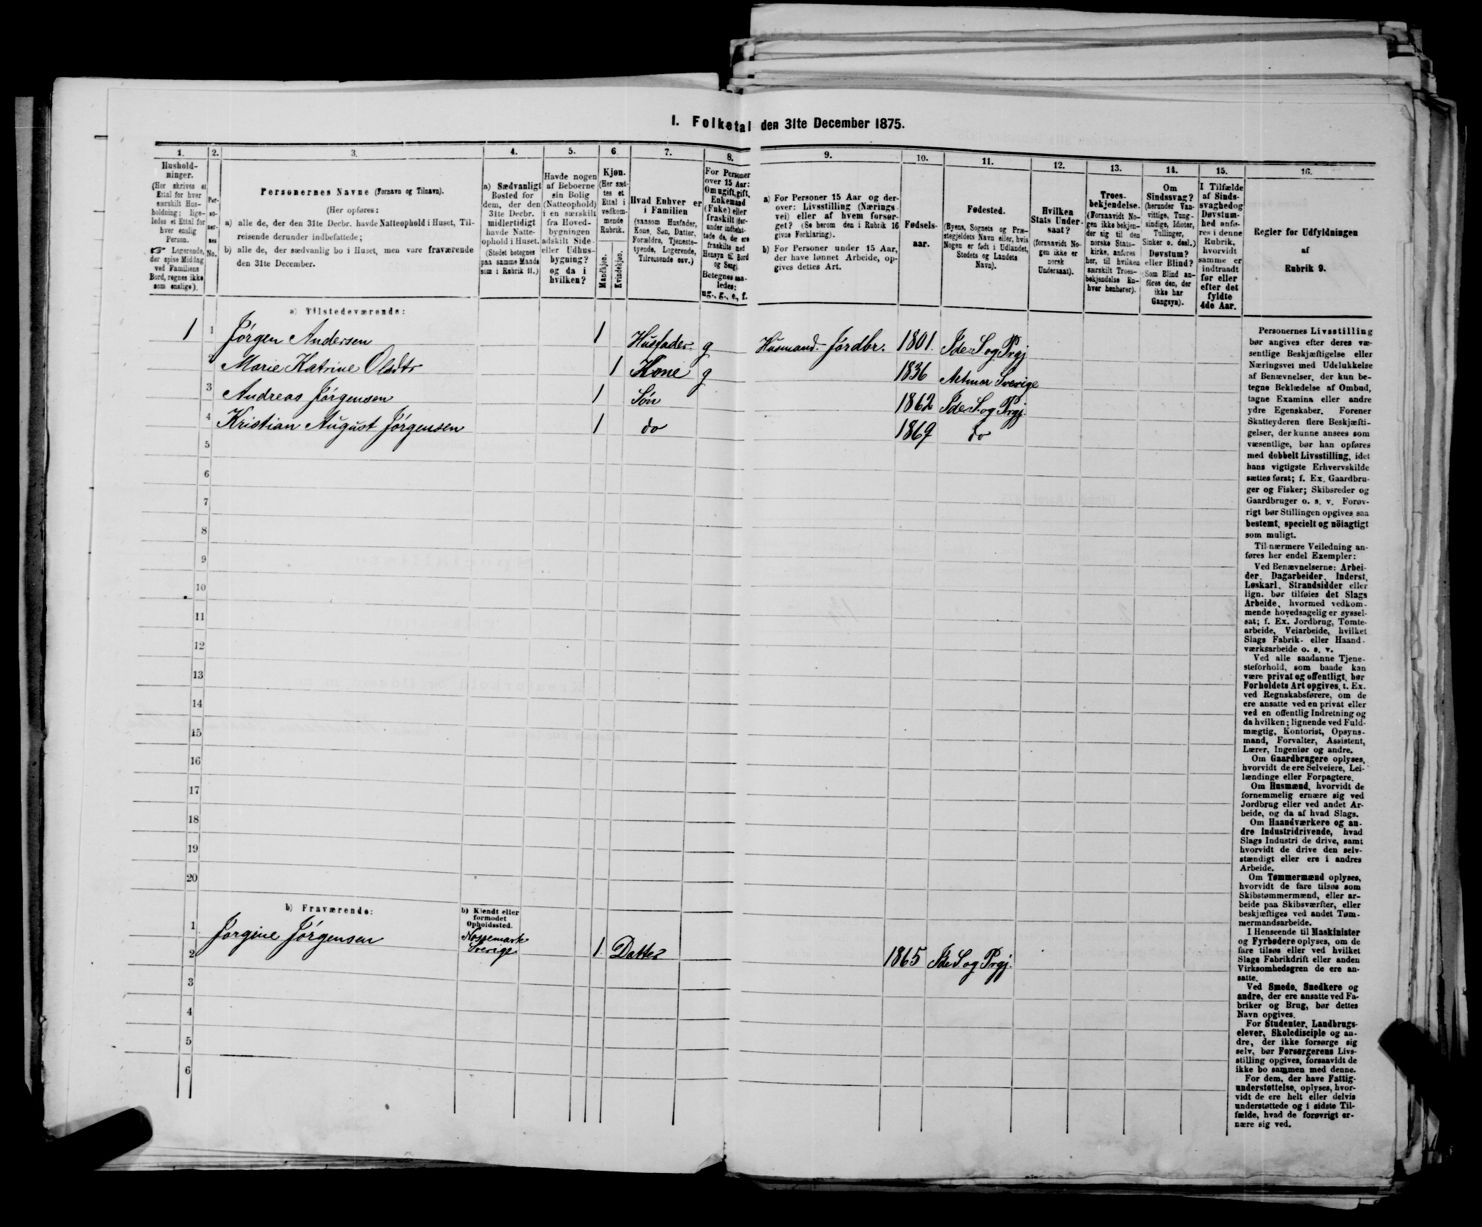 I. Folketal den 31te December 1875.
1. 2. 3. 4. 5. 6. 7. 8. 9. 10. 11. 12. 13. 14. 15. 16.
Hushold-
ninger.
(Her skrives et
Ettal for hver
særskilt Hus-
holdning; lige-
ledes et Ettal for
hver enslig
Person.
☞ Logerende,
der spise Middag
ved Familiens
Bord, regnes ikke
som enslige).
Per-
so-
ner-
nes
No.
Personernes Navne (Fornavn og Tilnavn).
(Her opføres:
a) alle de, der den 31te Decbr. havde Natteophold i Huset, Til-
reisende derunder indbefattede;
b) alle de, der sædvanlig bo i Huset, men vare fraværende
den 31te December.
a) Sædvanligt
Bosted for
dem, der den
31te Decbr.
midlertidigt
havde Natte-
ophold i Huset.
(Stedet betegnes
paa samme Maade
som i Rubrik 11.)
Havde nogen
af Beboerne
sin Bolig
(Natteophold)
i en særskilt
fra Hoved-
bygningen
adskilt Side-
eller Udhus-
bygning?
og da i
hvilken?
Kjøn.
(Her sæt-
tes et
Ettal i
vedkom-
mende
Rubrik.
Mandkjøn.
Kvindekjøn.
Hvad Enhver er
i Familien
(saasom Husfader,
Kone, Søn, Datter,
Forældre, Tjeneste-
tyende, Logerende,
Tilreisende osv.)
For Personer
over 15 Aar:
Om ugift, gift,
Enkemand
(Enke) eller
fraskilt (der-
under indbefat-
tede de, der ere
fraskilte med
Hensyn til Bord
og Seng).
Betegnes saa-
ledes:
ug., g., e., f.
a) For Personer 15 Aar og der-
over: Livsstilling (Nærings-
vei) eller af hvem forsør-
get? (Se herom den i Rubrik 16
givne Forklaring).
b) For Personer under 15 Aar,
der have lønnet Arbeide, op-
gives dettes Art.
Fødsels-
aar.
Fødested.
(Byens, Sognets og Præ-
stegjeldets Navn eller, hvis
Nogen er født i Udlandet,
Stedets og Landets
Navn).
Hvilken
Stats Under-
saat?
(forsaavidt No-
gen ikke er
norsk
Undersaat).
Troes-
bekjendelse.
(Forsaavidt No-
gen ikke bekjen-
der sig til den
norske Stats-
kirke, anføres
her, til hvilken
særskilt Troes-
bekjendelse En-
hver henhører).
Om
Sindssvag?
(herunder Van-
vittige, Tung-
sindige, Idioter,
Tullinger,
Sinker o. desl.)
Døvstum?
eller Blind?
(Som Blind an-
føres den, der
ikke har
Gangsyn).
I Tilfælde
af Sinds-
svaghed og
Døvstum-
hed anfø-
res i denne
Rubrik,
hvorvidt
samme er
indtraadt
før eller
efter det
fyldte
4de Aar.
Regler for Udfyldningen
af
Rubrik 9.
a) Tilstedeværende:
1 1 Jørgen Andersen 1 Husfader g Husmand. Jordbr. 1801. Ide S og Prgj
Marie Katrine Olsdtr 1 Kone g 1836 Sverige
3 Andreas Jørgensen 1 Søn 1862 Ide S. og Prgj.
4 Kristian August Jørgensen 1 do 1869 do
5
6
7
8
9
10
11
12
13
14
15
16
17
18
19
20
b) Fraværende:
b) Kjendt eller
formodet
Opholdssted.
1 Jørgine Jørgensen Nossemark
Sverige 1 Datter 1865 Ide S og Prgj.
2
3
4
5
6
Personernes Livsstilling
bør angives efter deres væ-
sentlige Beskjæftigelse eller
Næringsvei med Udelukkelse
af Benævnelser, der kun be-
tegne Beklædelse af Ombud,
tagne Examina eller andre
ydre Egenskaber. Forener
Skatteyderen flere Beskjæfti-
gelser, der kunne ansees som
væsentlige, bør han opføres
med dobbelt Livsstilling, idet
hans vigtigste Erhvervskilde
sættes først; f. Ex. Gaardbru-
ger og Fisker; Skibsreder og
Gaardbruger o. s. v. Forøv-
rigt bør Stillingen opgives saa
bestemt, specielt og nöiagtigt
som muligt.
Til nærmere Veiledning an-
føres her endel Exempler:
Ved Benævnelserne: Arbei-
der, Dagarbeider, Inderst,
Løskarl, Strandsidder eller
lign. bør tilføies det Slags
Arbeide, hvormed vedkom-
mende hovedsagelig er syssel-
sat; f. Ex. Jordbrug, Tomte-
arbeide, Veiarbeide, hvilket
Slags Fabrik- eller Haand-
værksarbeide o. s. v.
Ved alle saadanne Tjene-
steforhold, som baade kan
være privat og offentligt, bør
Forholdets Art opgives, t. Ex.
ved Regnskabsførere, om de
ere ansatte ved en privat eller
ved en offentlig Indretning og
da hvilken; lignende ved Fuld-
mægtig, Kontorist, Opsyns-
mand, Forvalter, Assistent,
Lærer, Ingeniør og andre.
Om Gaardbrugere oplyses,
hvorvidt de ere Selveiere, Lei-
lændinge eller Forpagtere.
Om Husmænd, hvorvidt de
fornemmelig ernære sig ved
Jordbrug eller ved andet Ar-
beide, og da af hvad Slags.
Om Haandværkere og an-
dre Industridrivende, hvad
Slags Industri de drive, samt
hvorvidt de drive den selv-
stændigt eller ere i andres
Arbeide.
Om Tømmermænd oplyses,
hvorvidt de fare tilsøs som
Skibstømmermænd, eller ar-
beide paa Skibsværfter, eller
beskjæftiges ved andet Tøm-
mermandsarbeide.
I Henseende til Maskinister
og Fyrbødere oplyses, om de
fare tilsøs eller ved hvilket
Slags Fabrikdrift eller anden
Virksomhedsgren de ere an-
satte.
Ved Smede, Snedkere og
andre, der ere ansatte ved Fa-
briker og Brug, bør dettes
Navn opgives.
For Studenter, Landbrugs-
elever, Skoledisciple og an-
dre, der ikke forsørge sig
selv, bør Forsørgerens Livs-
stilling opgives, forsaavidt de
ikke bo sammen med denne.
For dem, der have Fattig-
understøttelse, oplyses, hvor-
vidt de ere helt eller delvis
understøttede og i sidste Til-
fælde, hvad de forøvrigt er-
nære sig ved.